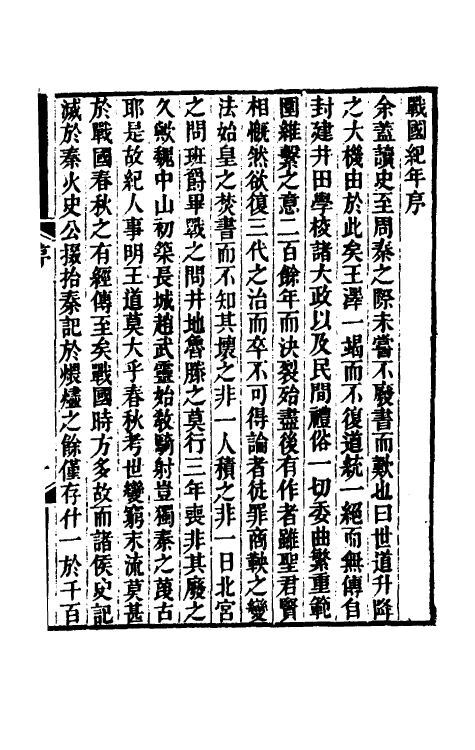 戰國紀年序
余蓋讀史至周秦之際未嘗不廢書而歎也曰世道升降
之大機由於此矣王澤一竭而不復道統一絕而無傳自
封建井田學校諸大政以及民間禮俗一切委曲繁重範
圍維繫之意二百餘年而決裂始盡後有作者雖聖君賢
相慨然欲復三代之治而卒不可得論者徒罪商鞅之變
法始皇之焚書而不知其壞之非一人積之非一日北宮
之問班爵畢戰之問井地魯滕之莫行三年喪非其廢之
久歟魏中山初築長城趙武靈始教騎射豈獨秦之蔑古
耶是故紀人事明王道莫大乎春秋考世變窮末流莫甚
於戰國春秋之有經傳至矣戰國時方多故而諸侯史記
滅於秦火史公掇拾秦記於煨燼之餘僅存什一於千百
序
一